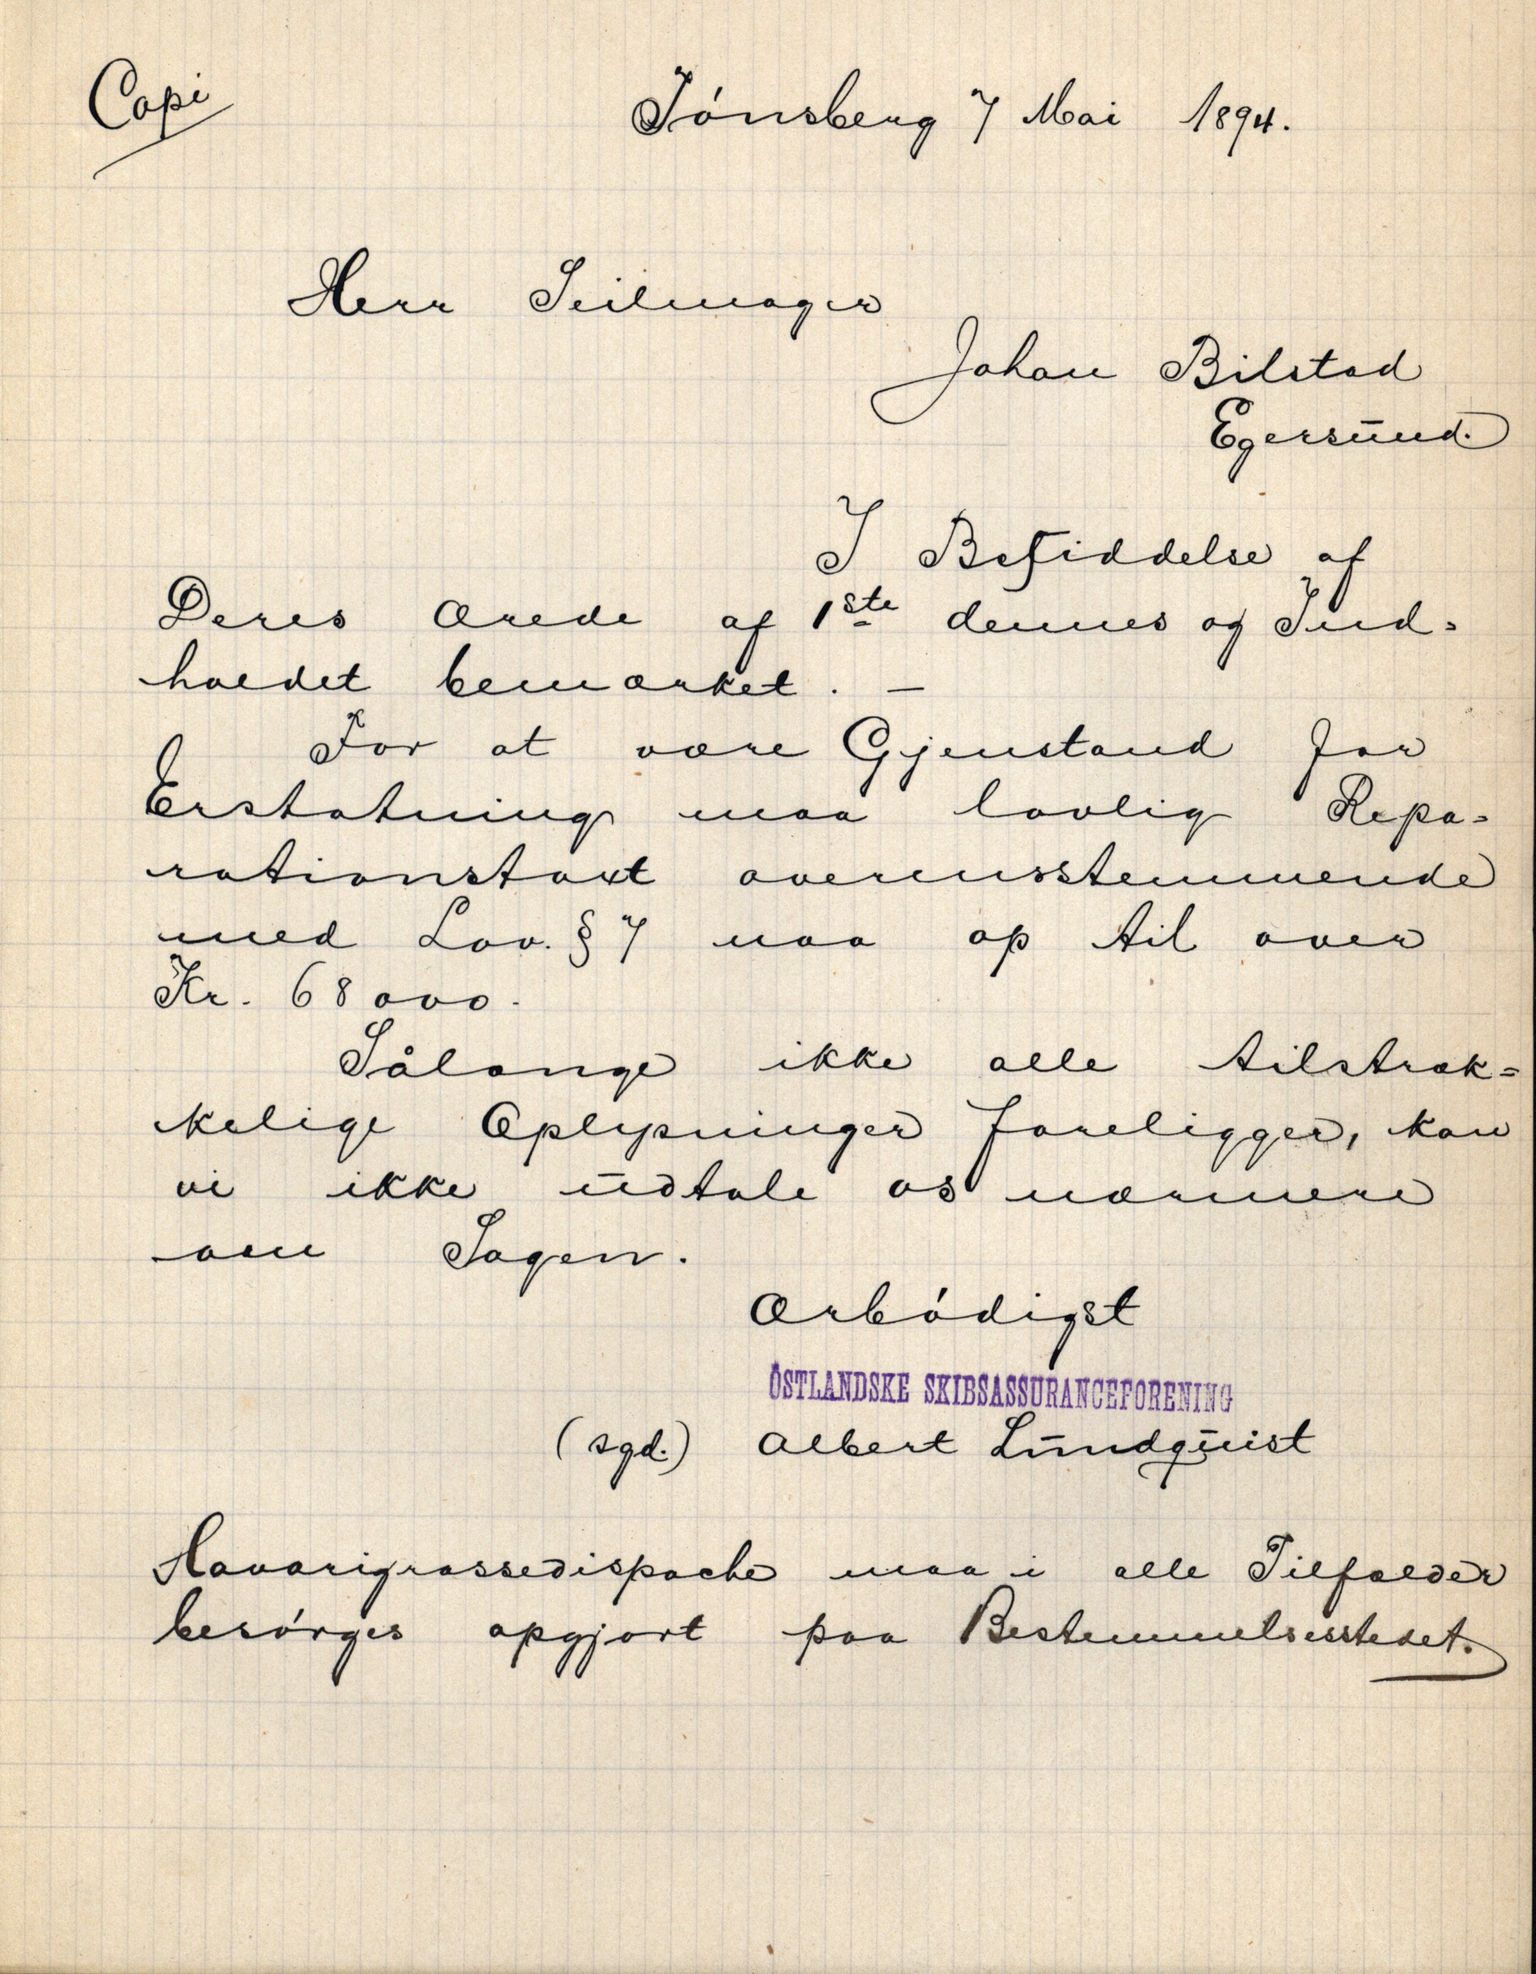 Copi
Tónsberg 7 Mai 1894.
Herr Seilmager
Johan Bilstad
Egersund.
I Besiddelse af
Deres ærede af 1ste dennes og Ind=
holdet bemærket. —
For at være Gjenstand for
Erstatning maa lovlig Repa=
rationstaxt overensstemmende
med Lov. § 7 naa op til over
Kr. 68000.
Sålænge ikke alle tilstræk=
kelige Oplysninger foreligger, kan
vi ikke udtale os nærmere
om Sagen.
Ærbódigst
ÖSTLANDSKE SKIBSASSURANCEFORENING
(sgd.) Albert Lundquist
Havarigrossedispache maa i alle Tilfælder
besórges opgjort paa Bestemmelsesstedet.